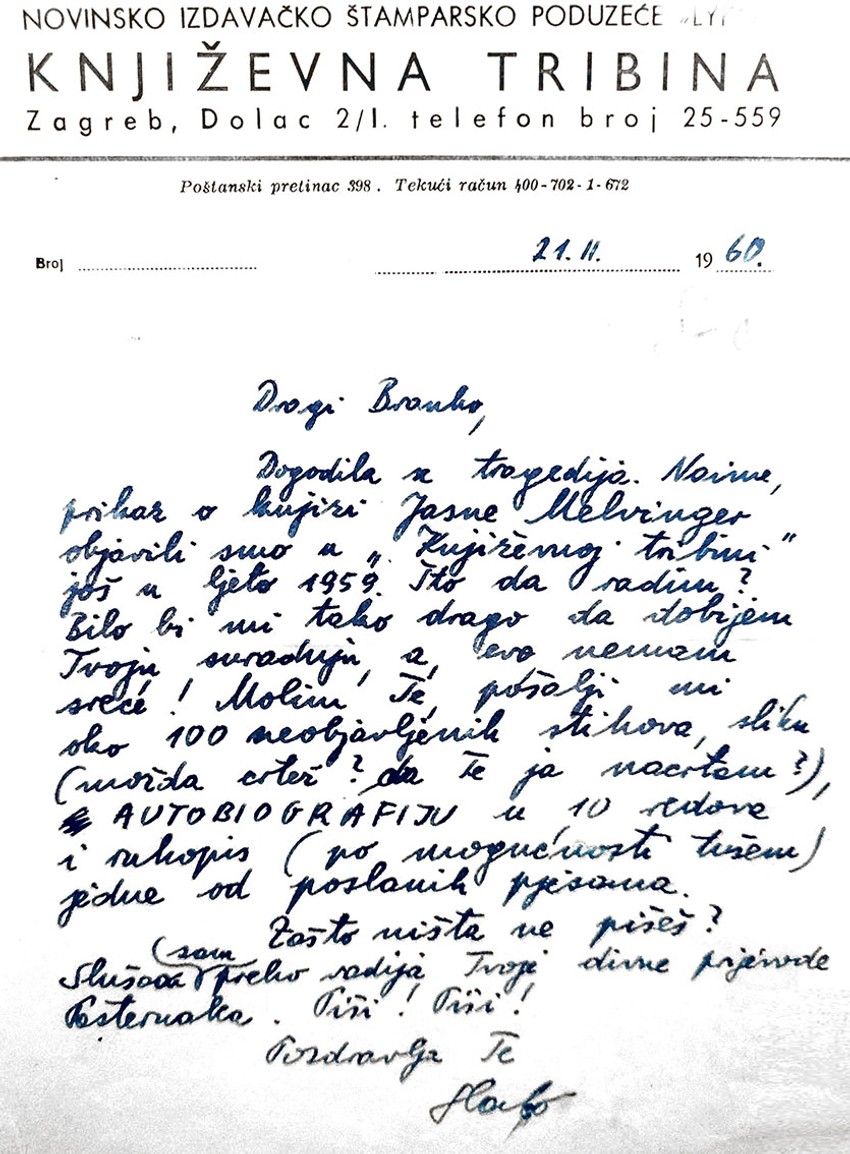 NOVINSKO IZDAVAČKO ŠTAMPARSKO PODUZEĆE
KNJIŽEVNA TRIBINA
Zagreb, Dolac 2/I. telefon broj 25-559
Poštanski pretinac 398. Tekući račun 400-702-1-672
Broj 21. II. 1960.
Dragi Branko,
Dogodila se tragedija. Naime,
prikaz o knjizi Jasne Melvinger
objavili smo u „Književnoj tribini"
još u ljeto 1959. Što da radim?
Bilo bi mi tako drago da dobijem
Tvoju suradnju, a, evo nemam
sreće! Molim Te, pošalji mi
oko 100 neobjavljenih stihova, sliku
(možda crtež? da Te ja nacrtam?),
AUTOBIOGRAFIJU u 10 redova
i rukopis (po mogućnosti tušem)
jedne od poslanih pjesama.
Zašto ništa ne pišeš?
sam
Slušao preko radija Tvoje divne prijevode
Pasternaka. Piši! Piši!
Pozdravlja Te